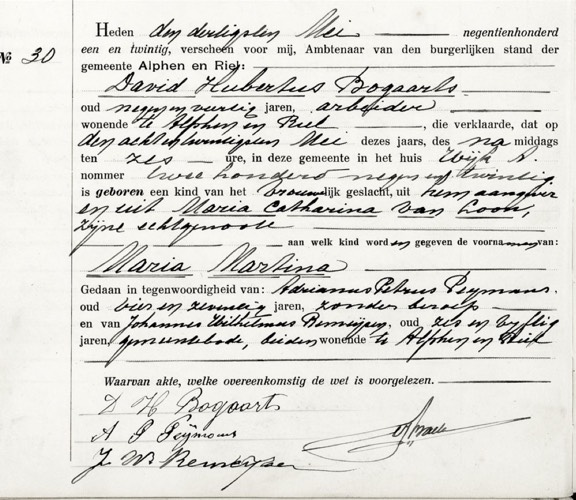 Nº 30
Heden den dertigsten Mei negentienhonderd
een en twintig, verscheen voor mij, Ambtenaar van den burgerlijken stand der
gemeente Alphen en Riel:
David Hubertus Bogaarts
oud negen en veertig jaren, arbeider
wonende te Alphen en Riel, die verklaarde, dat op
den acht en twintigsten Mei dezes jaars, des na middags
ten zes ure, in deze gemeente in het huis Wijk A.
nommer twee honderd negen en twintig
is geboren een kind van het vrouwelijk geslacht, uit hem aangever
en uit Maria Catharina van Loon,
zijne echtgenoote
aan welk kind worden gegeven de voornamen van:
Maria Martina
Gedaan in tegenwoordigheid van: Adrianus Petrus Peymans.
oud vier en zeventig jaren, zonder beroep
en van Johannes Wilhelmus Remeijsen, oud zes en vijftig
jaren, gemeentebode, beiden wonende te Alphen en Riel
Waarvan akte, welke overeenkomstig de wet is voorgelezen.
D H Bogaarts
A P Peijmans
J W Remeijsen